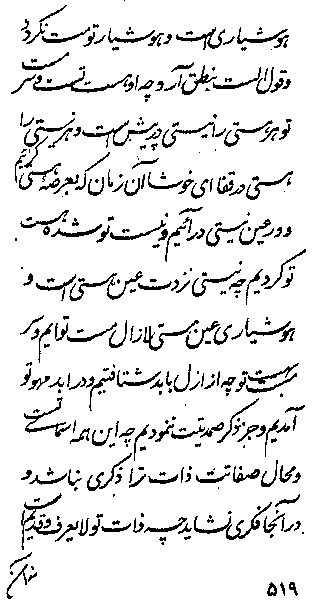 هوشیاری است و هوشیار تو مست نگردد
و قول الست بنطق آر و چه او هست تست و مست
تو هر هستی را نیستی در پیش است و هر نیستی را
هستی در قفا ای خوشا آن زمان که بعرصه هستی گریزیم
و در عین نیستی در آئیم و نیست تو شده هست
تو گردیم چه نیستی نزدت عین هستی است و
هوشیاری عین مستی لازال مست توایم و
تو چه از ازل بابد شتافتیم و در ابد مهو تو
آمدیم و جز ذکر صمدیتت ننمودیم چه این همه اسما تست
و محال صفاتت ذات ترا ذکری نباشد و
در آنجا فکری نشاید چه ذات تو لا یعرف و قدیم است
۵۱۹